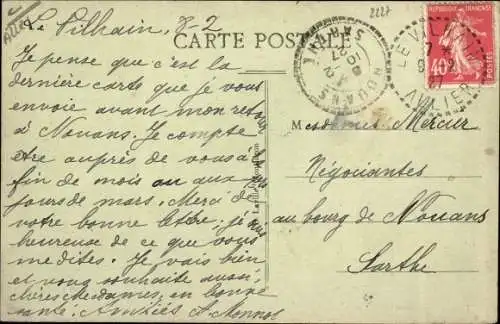 Le Vilhain, 8-2
2227
CARTE POSTALE
Je pense que c'est la
dernière carte que je vous
envoie avant mon retour
à Nouans. Je compte
être auprès de vous à
fin de mois ou aux
jours de mars. Merci de
votre bonne lettre. je suis
heureuse de ce que vous
me dites. Je vais bien
et vous souhaite aussi
chères Mesdames, en bonne
santé. Amitiés
Mesdames Mercier
Négociantes
au bourg de Nouans
Sarthe
RÉPUBLIQUE FRANÇAISE
40c
POSTES
LE VILHAIN
ALLIER
NOUANS
SARTHE